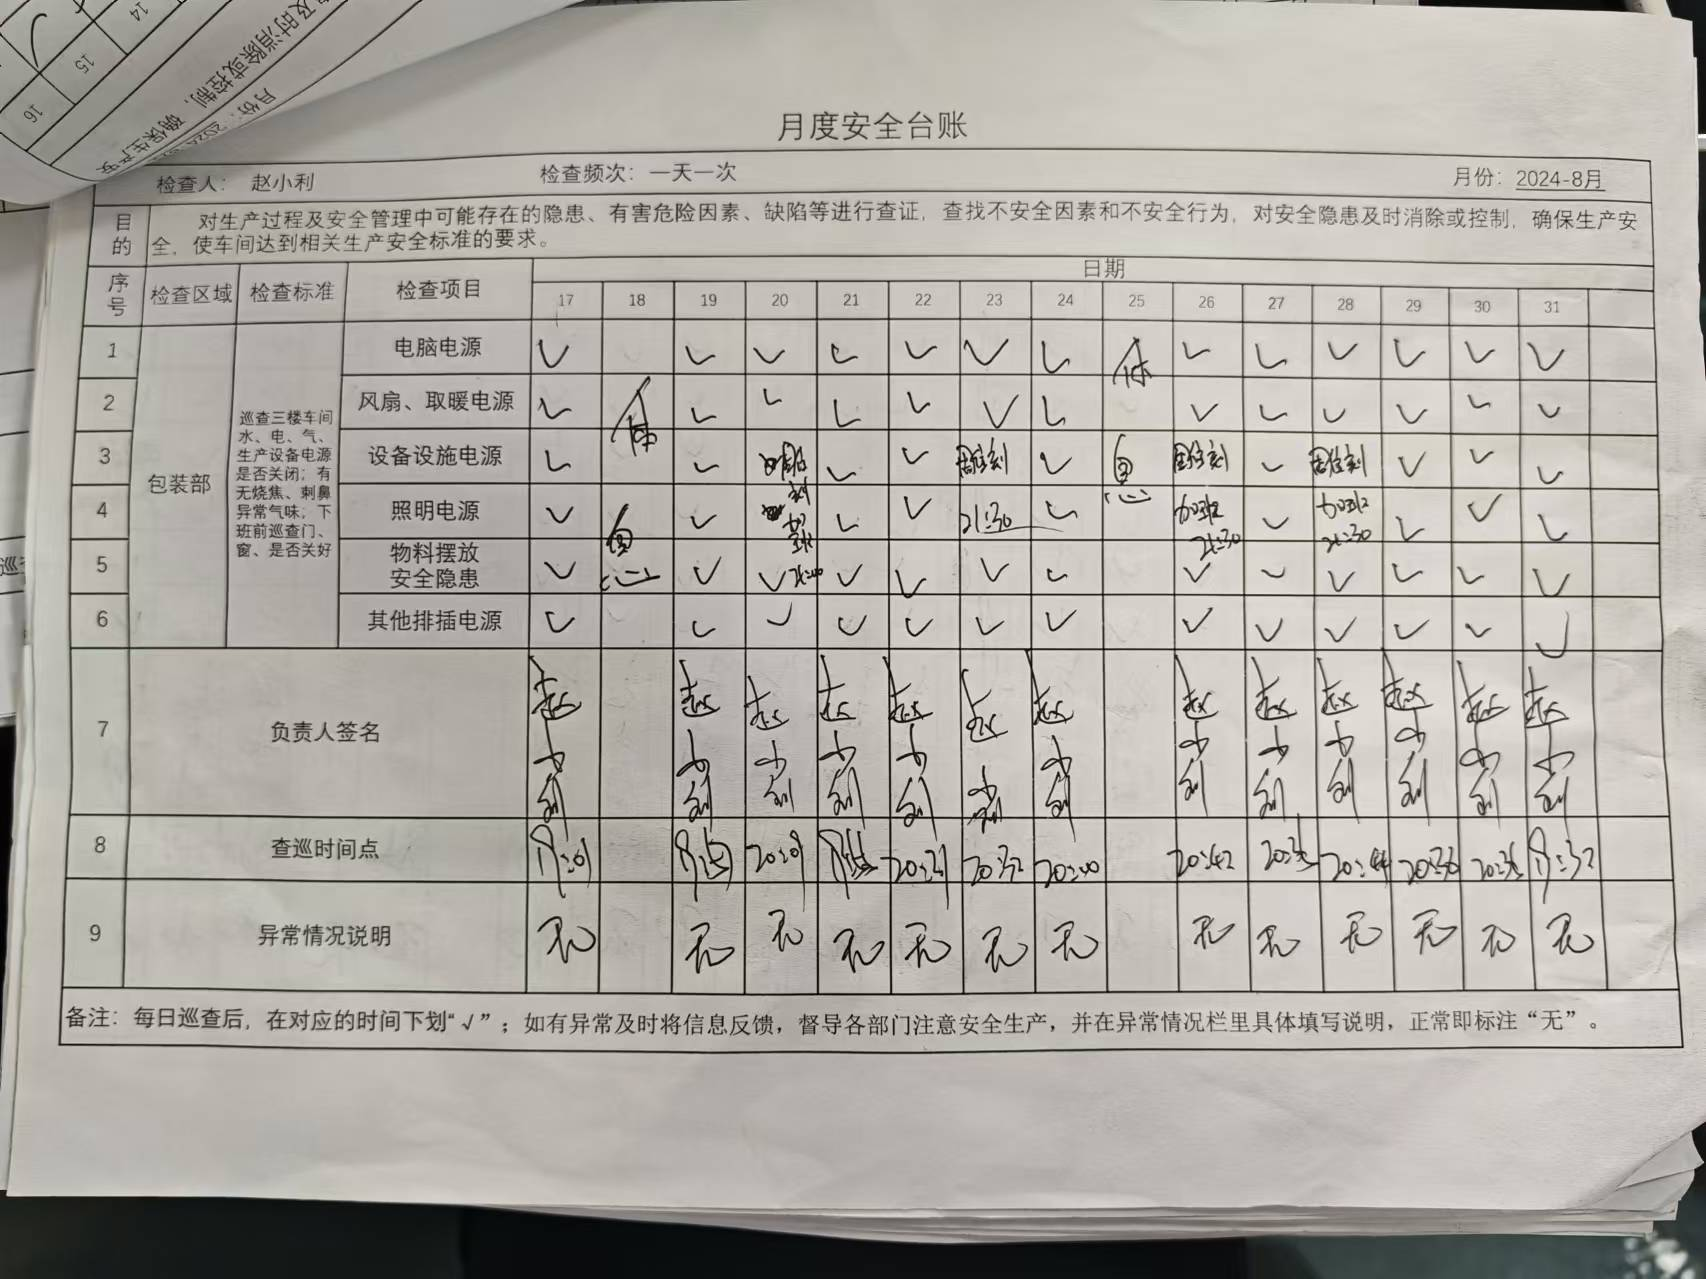 14
15
16
及时消除或控制,
确保生产安
月份:
月度安全台账
检查人: 赵小利 检查频次: 一天一次 月份: 2024-8月
目的 对生产过程及安全管理中可能存在的隐患、有害危险因素、缺陷等进行查证,查找不安全因素和不安全行为,对安全隐患及时消除或控制,确保生产安
全,使车间达到相关生产安全标准的要求。
序号 检查区域 检查标准 检查项目 日期
17 18 19 20 21 22 23 24 25 26 27 28 29 30 31
包装部
巡查三楼车间
水、电、气、
生产设备电源
是否关闭;有
无烧焦、刺鼻
异常气味,下
班前巡查门、
窗、是否关好
1 电脑电源 ✓ ✓ ✓ ✓ ✓ ✓ ✓ ✓ ✓ ✓ ✓ ✓ ✓
2 风扇、取暖电源 ✓ ✓ ✓ ✓ ✓ ✓ ✓ ✓ ✓ ✓ ✓ ✓ ✓
休息
休息
3 设备设施电源 ✓ ✓ ✓ ✓ ✓ ✓ ✓ ✓ ✓
4 照明电源 ✓ ✓ ✓ ✓ 21:30 ✓ 加班 21:30 ✓ 加班 21:30 ✓ ✓ ✓
5 物料摆放
安全隐患 ✓ ✓ ✓ ✓ ✓ ✓ ✓ ✓ ✓ ✓ ✓ ✓ ✓
6 其他排插电源 ✓ ✓ ✓ ✓ ✓ ✓ ✓ ✓ ✓ ✓ ✓ ✓ ✓
7 负责人签名 赵小利 赵小利 赵小利 赵小利 赵小利 赵小利 赵小利 赵小利 赵小利 赵小利 赵小利 赵小利 赵小利
8 查巡时间点 20:32 20:40 20:42 20:44 20:36
9 异常情况说明 无 无 无 无 无 无 无 无 无 无 无 无 无
备注: 每日巡查后,在对应的时间下划“√”;如有异常及时将信息反馈,督导各部门注意安全生产,并在异常情况栏里具体填写说明,正常即标注“无”。